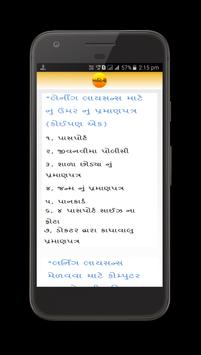 57% 2:15 pm
*લર્નીંગ લાયસન્સ માટે
નું ઉંમર નું પ્રમાણપત્ર
(કોઈપણ એક)
૧. પાસપોર્ટ
૨. જીવનવીમા પોલીસી
૩. શાળા છોડયા નું
પ્રમાણપત્ર
૪. જન્મ નું પ્રમાણપત્ર
૫. પાનકાર્ડ
૬. ૪ પાસપોર્ટ સાઈઝ ના
ફોટા
૭. ડોક્ટર દ્વારા કાઘાવાલુ
પ્રમાણપત્ર
*લર્નિંગ લાયસન્સ
મેળવવા માટે કોમ્પુટર